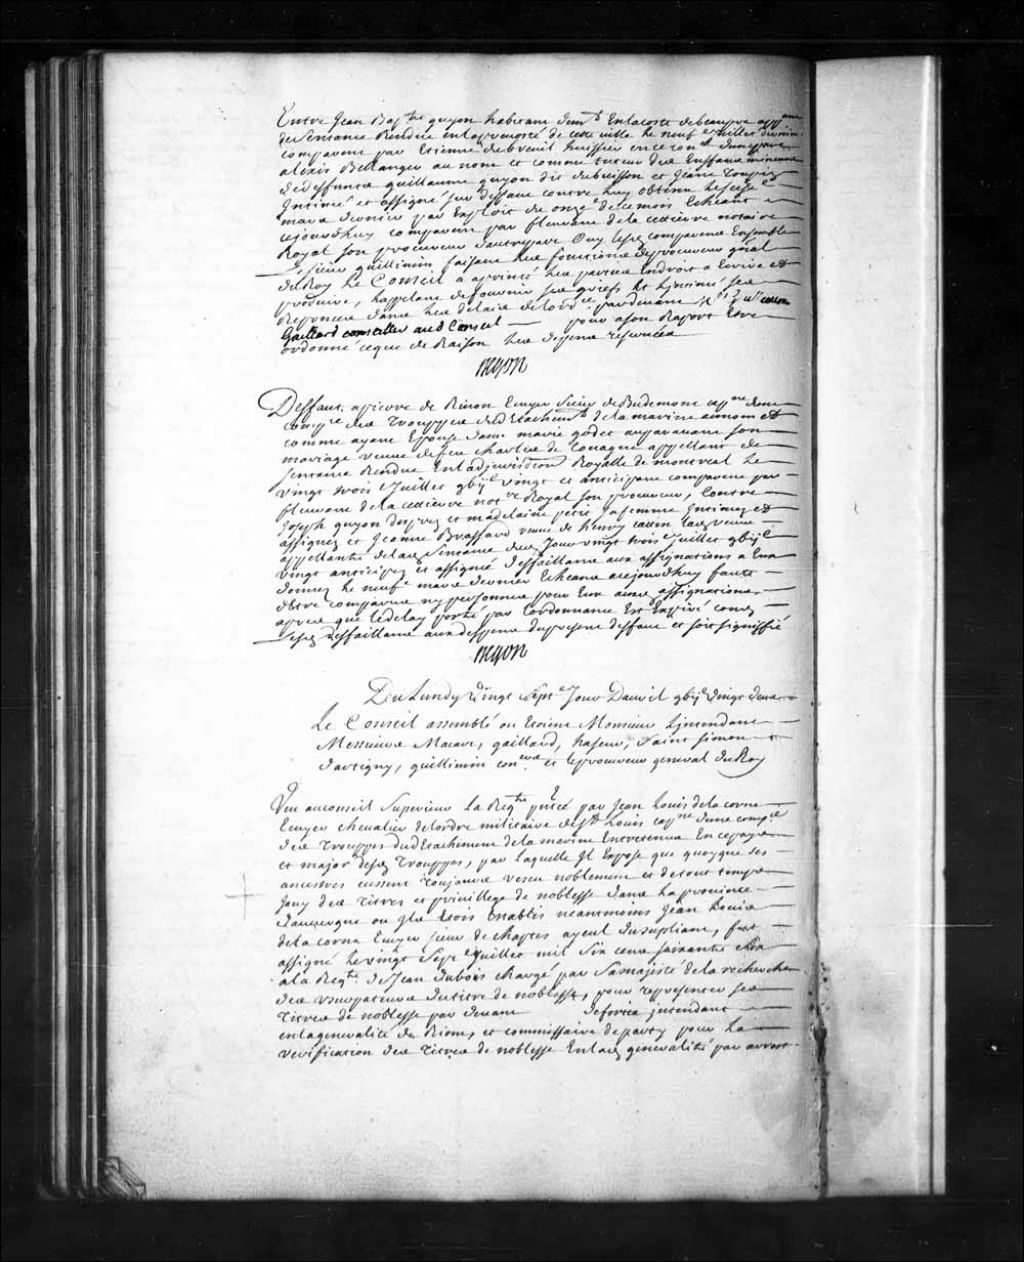 Entre Jean Bapte guyon habitant dem.t En la coste de beaupré app.ant
de sentence Rendue en la prevosté de cette ville le neuf Juillet dernier
comparant par Etienne dubreuil huissier en ce con.el d'une part
alexis Bellanger au nom et comme tuteur des Enffans mineurs
de deffunts guillaume guyon dit dubuisson et Jeanne Toupin
Intimé et assigné sur deffaut contre luy obtenu le seize
mars dernier par Exploit du onze de ce mois Echeant a
cejourdhuy comparant par fleurant de la cettierre notaire
Royal son procureur dautre part Ouy lesd comparans Ensemble
Le sieur guillimin faisant les fonctions de procureur gñal
du Roy Le Conseil a apointé les parties Endroit a Ecrire et
produire, l'appelant de fournir ses griefs et L'intimé ses
Reponses dans les delais de l'ord.ce pardevant
Gaillard conseiller aud Conseil — pour a son Raport Estre
ordonné ce que de Raison les depens reservés
Begon
Deffaut a pierre de Rivon Ecuyer Sieur de Budemont cap.ne dune
comp.e des Trouppes du detachem.t de la marine au nom et
comme ayant Epousé dame marie godet auparavant son
mariage veuve de feu charles de Couagne appellant de
sentence Rendue En la Jurisdiction Royalle de montreal le
vingt trois Juillet gbij.c vingt et anticipant comparant par
fleurant de la cettierre not.re Royal son procureur, Contre
Joseph guyon desprez et madelaine petit sa femme Intimez et
assignez et Jeanne Brassard veuve de henry catin lad. veuve
appellante de lad. sentence dud. Jour vingt trois Juillet gbij.c
vingt anticipez et assignés deffaillans aux assignations a Eux
donnez le neuf mars dernier Echeans acejourdhuy faute
dEtre comparus ny personnes pour Eux ausd assignations,
apres que le delay porté par lordonnance Est Expiré cond.
Lesd. deffaillans aux depens du present deffaut et soit signiffié
Begon
Du Lundy vingt sept.e Jour Davril gbij.c vingt deux
Le Conseil assemblé ou Etoient Monsieur L'intendant
Messieurs Macart, gaillard, hazeur, Saint simon
dartigny, guillimin con.ers et le procureur general du Roy
Veu au conseil Superieur La Req.te p̃ñtée par Jean Louis de la corne
Ecuyer chevalier de lordre militaire de St Louis cap.ne dune comp.e
des Trouppes du dEtachement de la marine Entretenus En ce pays
et major desd. Trouppes, par laquelle Il Expose que quoyque ses
ancestres eussent toujours vescu noblement et de tout temps
Jouy des titres et privilleges de noblesse dans la province
d'auvergne ou Ils Etois Etablis neantmoins Jean Louis
de la corne Ecuyer sieur de chapts ayeul du supliant, fut
assigné le vingt sept Juillet mil six cens soixante six
a la Req.te de Jean dubois chargé par sa majesté de la recherche
des usurpateurs du titre de noblesse, pour representer ses
titres de noblesse par devant de fortia jntendant
en la generalité de Riom, et commissaire departy pour la
verification des titres de noblesse En lad. generalité par arrest